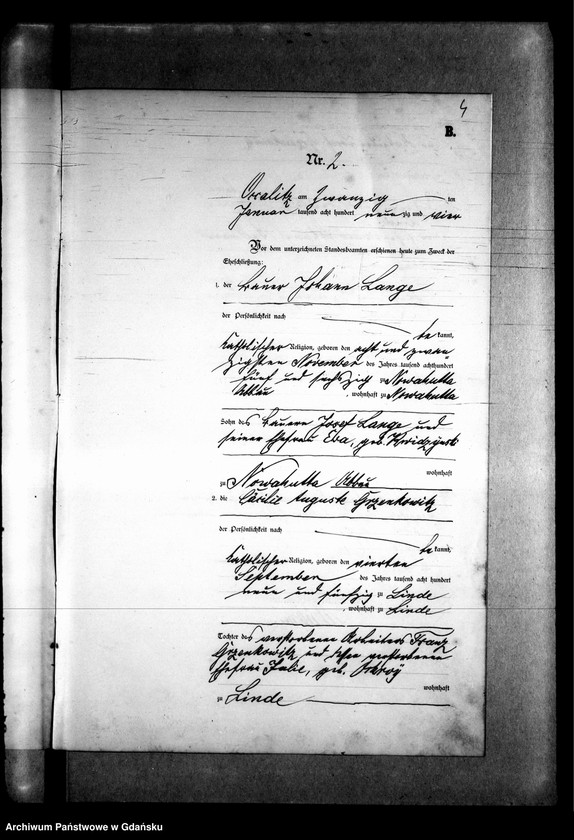 4
B.
Nr. 2.
Occalitz am Zwanzig ten
Januar tausend acht hundert neunzig und vier
Vor dem unterzeichneten Standesbeamten erschienen heute zum Zweck der
Eheschließung:
1. der Bauer Johann Lange
der Persönlichkeit nach
be kannt,
katholischer Religion, geboren den acht und zwan
zigsten November des Jahres tausend achthundert
fünf und sechszig zu Nowahutta
Abbau , wohnhaft zu Nowahutta
Sohn des Bauern Josef Lange und
seiner Ehefrau Eva, geb.
wohnhaft
zu Nowahutta Abbau
2. die Cäcilie Auguste Grzenkowitz
der Persönlichkeit nach
be kannt,
katholischer Religion, geboren den vierten
September des Jahres tausend acht hundert
neun und fünfzig zu Linde
, wohnhaft zu Linde
Tochter des verstorbenen Arbeiters Franz
Grzenkowitz und dessen verstorbenen
Ehefrau Julie, geb.
wohnhaft
zu Linde
Archiwum Państwowe w Gdańsku